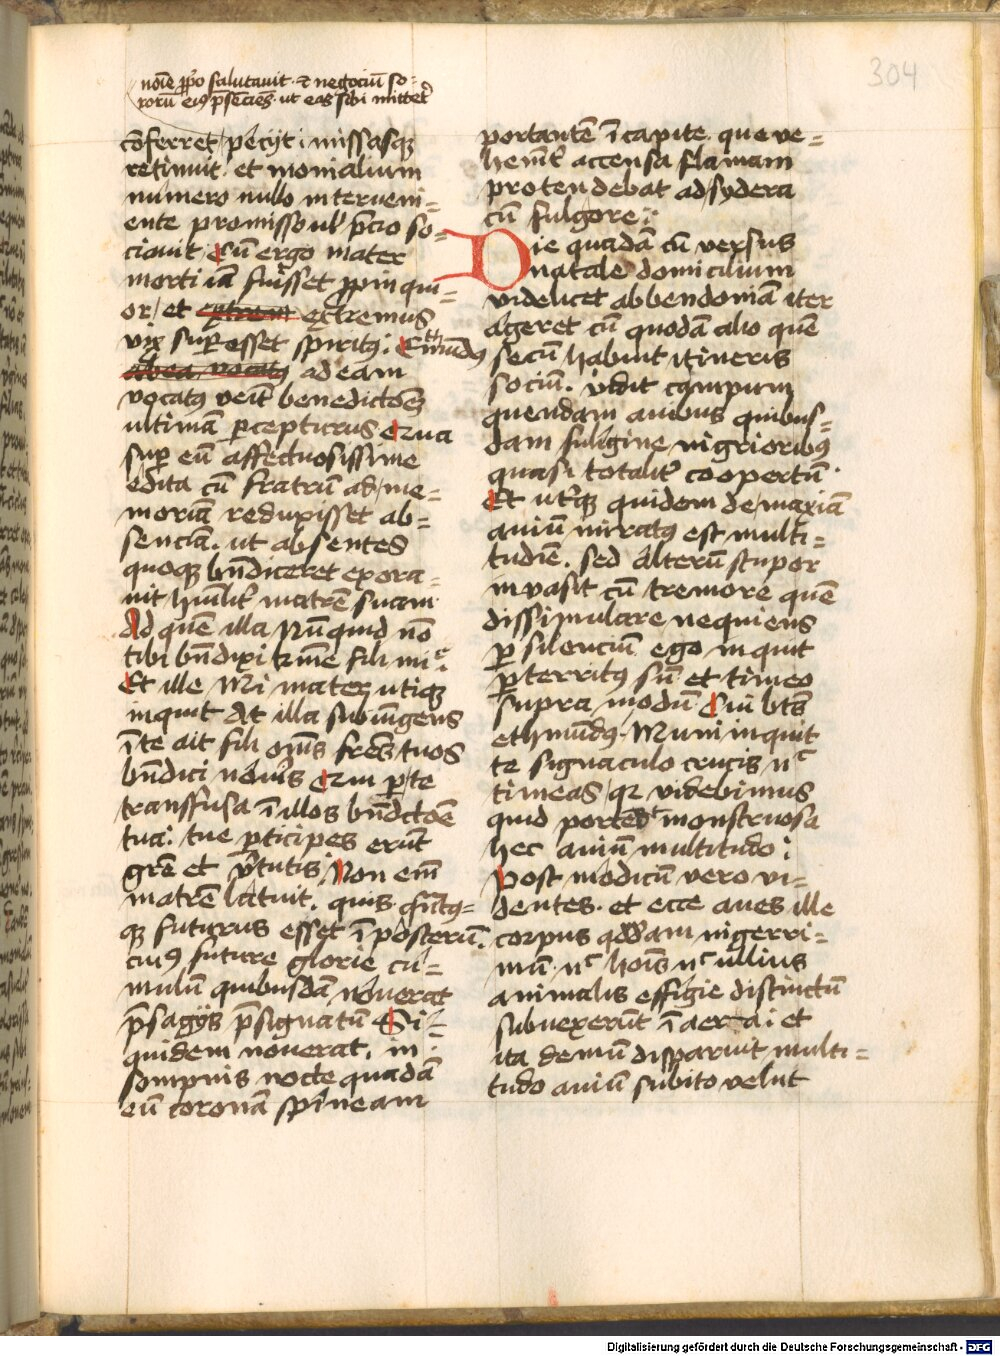 304
noīe ꝓp̄o salutauit · et negociū so-
rorū eiꝰ p̄sēciēs · ut eas sibi mittet
cōferret / peciit · missasqꝫ
retinuit · et monialium
numero nullo interueni-
ente promisso ul' p̄cio so-
ciauit Cū ergo mater
morti iā fuisset ꝓpin qui-
or / et extrem extremus
vix suꝑesset spiritꝰ · Ethmūdꝰ
ab ea vocatꝰ ad eam
vocatꝰ veīt benedictōeꝫ
ultimā ꝑcepturus Qua
suꝑ eū affectuosissime
edita cū fratrū ad / me-
moriā reduxisset ab-
senciā · ut absentes
quoqꝫ bn̄diceret exora-
uit hūilit' matrē suam
Ad quē illa Nūquid nō
tibi bn̄dixi fili mi
Et ille Mi mater utiqꝫ
inquit At illa subiūgens
ī te ait fili oīns frēs tuos
bn̄dici noūis Qm̄ ꝑ te
transfusa ī illos bn̄dctōe
tua · tue ꝑticipes erūt
grē et v̄tutis · Non em̄
matrē latuit · quis q̄ntꝰ-
qꝫ futurus esset ī posterū ·
cuiꝰ future glorie cu-
mulū quibusdā nouerat
p̄sagiis p̄signatū Si-
quidem nouerat · in
sompnis nocte quadā
eū coronā spineam
portantē ī capite · que ve-
hemēt' accensa flamam
protendebat ad sydera
cū fulgore ·
Die quadā cū versus
natale domicilium
videlicet abbendoniā iter
ageret cū quodā alio quē
secū habuit itineris
sociū · vidit campum
quendam auibus quibus-
dam fuligine nigrioribꝰ
quasi totalit' coopertū ·
Et ut'qꝫ quidem de / maxiā
auiū miratꝰ est multi-
tudīe · sed alterū stupor
inuasit cū tremore quē
dissimulare nequiens
ꝑ silenciū ego inquit
ꝑterritꝰ sū et timeo
supra modū Cui btūs
ethmūdꝰ · Muni inquit
te signaculo crucis nͨ
timeas / qꝛ videbimus
quid portēdͭ monstruosa
hec auiū multitudo ·
Post modicū vero vi-
dentes · et ecce aues ille
corpus qddam nigerri-
mū · nͨ hoīs nͨ ullius
animalis effigie distinctū
subuexerūt ī aera · et
ita demū disparuit multi-
tudo auiū subito velut
Digitalisierung gefördert durch die Deutsche Forschungsgemeinschaft - DFG